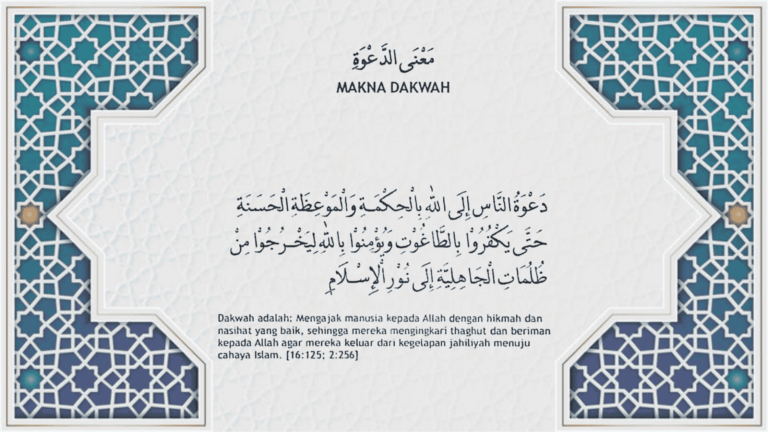 مَعْنَى الدَّعْوَةِ
MAKNA DAKWAH
دَعْوَةُ النَّاسِ إِلَى اللهِ بِالْحِكْمَةِ وَالْمَوْعِظَةِ الْحَسَنَةِ
حَتَّى يَكْفُرُوْا بِالطَّاغُوْتِ وَيُؤْمِنُوْا بِاللهِ لِيَخْرُجُوْا مِنْ
ظُلُمَاتِ الْجَاهِلِيَّةِ إِلَى نُوْرِ الْإِسْلَامِ
Dakwah adalah: Mengajak manusia kepada Allah dengan hikmah dan
nasihat yang baik, sehingga mereka mengingkari thaghut dan beriman
kepada Allah agar mereka keluar dari kegelapan jahiliyah menuju
cahaya Islam. [16:125; 2:256]